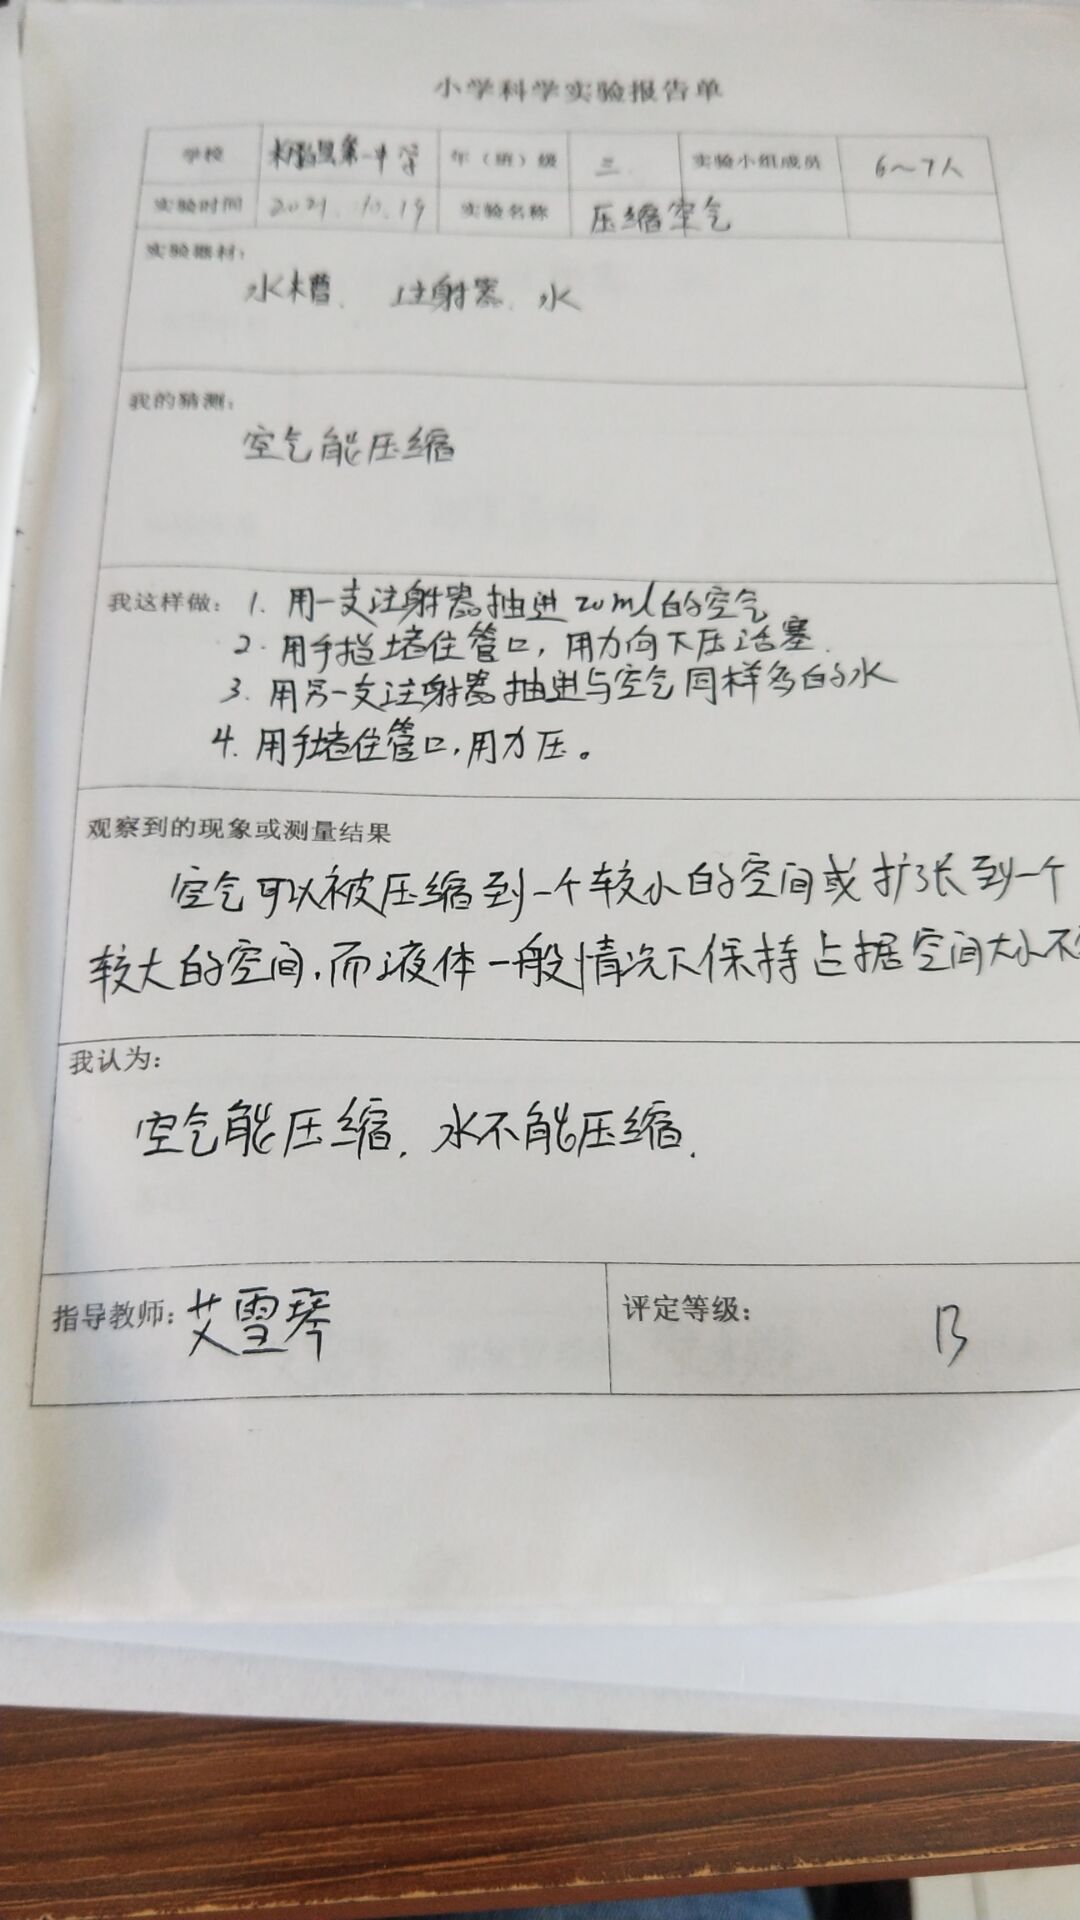 小学科学实验报告单
学校 第一中学 年（班）级 三 实验小组成员 6～7人
实验时间 2021.10.19 实验名称 压缩空气
实验器材：
水槽、注射器、水
我的猜测：
空气能压缩
我这样做：1. 用一支注射器抽进20ml的空气
2. 用手指堵住管口，用力向下压活塞.
3. 用另一支注射器抽进与空气同样多的水
4. 用手堵住管口，用力压。
观察到的现象或测量结果
空气可以被压缩到一个较小的空间或扩张到一个
较大的空间，而液体一般情况下保持占据空间大小不
我认为：
空气能压缩，水不能压缩.
指导教师：艾雪琴 评定等级： B